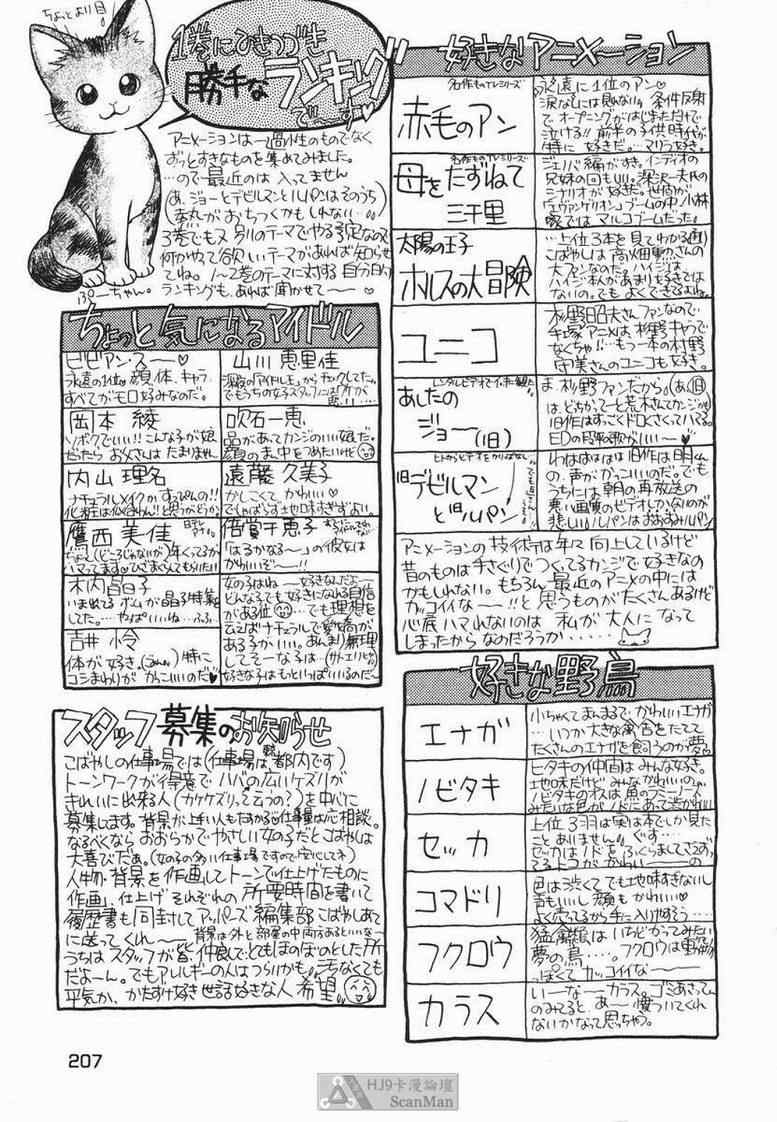 ちょっとより目!
1巻にひきつづき
勝手な
ランキング
です
アニメーションは一過性のものでなく
ずっとすきなものを集めてみました。
…ので最近のは入ってません
(あ、ジョーとデビルマンとルパンはそのうち
3巻でもまた別のテーマでやる予定なので
何かやって欲しいテーマがあれば知らせ
てね。1〜2巻のテーマに対する自分の
ランキングも、あれば聞かせて〜
ちょっと気になるアイドル
ビビアン・スー
永遠の1位 顔、体、キャラ
すべてがモロ好みなのだ。
岡本 綾
ソボクでいい!!こんな子が娘
だったらお父さんはたまりません
内山 理名
ナチュラルメイクかすっぴんの!!
鷹西 美佳
木内晶子
した。…やっぱいいね…ふふ
吉井 怜
体が好き。特に
コシまわりがかっこいいのだ
山川 恵里佳
吹石一恵
品があってカンジのいい娘だ。
顔のまん中をつめたいけど
遠藤 久美子
かしこくてかわいい
でしゃばらず地味すぎずよい。
倍賞千恵子
「はるかなる〜」の彼女は
かわいいぞ〜!!
女の子はね〜好きなんだよ〜
どんな子でも好きになれる自信
がある位…でも理想を
云えばナチュラルで愛嬌が
あるかいい。あんまり無理
してそーな子は…
好きな子はもっといっぱいいるのだ
スタッフ募集のお知らせ
こばやしの仕事場では(仕事場は都内です)
トーンワークが得意でハバの広いケズリが
きれいに出来る人(カケケズリって云うの?)を中心に
募集します。背景が上手い人もたすかる。仕事量は応相談。
なるべくならおおらかでやさしい女の子だとこばやしは
大喜びだぁ。(女の子の多い仕事場ですので安心してネ)
人物・背景を作画してトーンで仕上げたものに
作画、仕上げそれぞれの所要時間を書いて
履歴書も同封してアッパーズ編集部こばやしあて
に送ってくれ〜
背景は外と部屋の中両方あるといいな〜
うちはスタッフが皆、仲良しでとてもほのぼのとした所
だよーん。でもアレルギーの人はつらいかも。汚なくても
平気か、かたずけ好き世話好きな人 希望。
好きなアニメーション
名作ものTVシリーズ
赤毛のアン
永遠に1位のアン
涙なしには見れない。条件反射
でオープニングがはじまっただけで
泣ける!!前半の子供時代が
特に好きだ。…マリラ好き。
名作ものTVシリーズ
母をたずねて
三千里
兄妹の回もいい。深沢一夫氏の
シナリオが好きだ。世間が
「エヴァンゲリオン」ブームの中、小林
家ではマルコブームだった。
太陽の王子
ホルスの大冒険
…上位3本を見てわかる通り
こばやしは高畑勲さんの
大ファンなのだ。ハイジは
ハイジ本人があまり好きでは
ないの。でもよくできてるよね。
ユニコ
杉野昭夫さんファンなので
手塚アニメは杉野キャラで
なくちゃ!!…もう一本の村野
守美さんのユニコも好き。
あしたの
ジョー(旧)
ま、杉野ファンだから。
旧作はすっごくドロくさくってハマってる。
旧デビルマン
と旧ルパン
の声がかっこいいのだ。でも
うちには朝の再放送の
悪い画質のビデオしかないのが
アニメーションの技術は年々向上しているけど
昔のものは手さぐりでつくってるカンジで好きなの
かもしれない。もちろん最近のアニメの中には
カッコイイな〜!!と思うものがたくさんあるけど
心底ハマれないのは 私が大人になって
しまったからなのだろうか……
好きな野鳥
エナガ
小ちゃくてまんまるでかわいいエナガ
…いつか大きな禽舎をたてて
たくさんのエナガを飼うのが夢。
ノビタキ
ヒタキの仲間はみんな好き。
地味だけどみんなかわいいの。
セッカ
上位3羽は実は本でしか見た
ことありません。ぐす…
コマドリ
色は渋くてでも地味すぎないし
声もいいし顔もかわいい
よく売ってるから手に入りそう……
フクロウ
猛禽類はいちどかってみたい
夢の鳥…。フクロウは動物
っぽくてカッコイイな〜
カラス
い〜な〜カラス。ゴミあさってん
のみてると、あ〜懐ついてくれ
ないかなって思っちゃう。
207
HJ9卡漫論壇
ScanMan